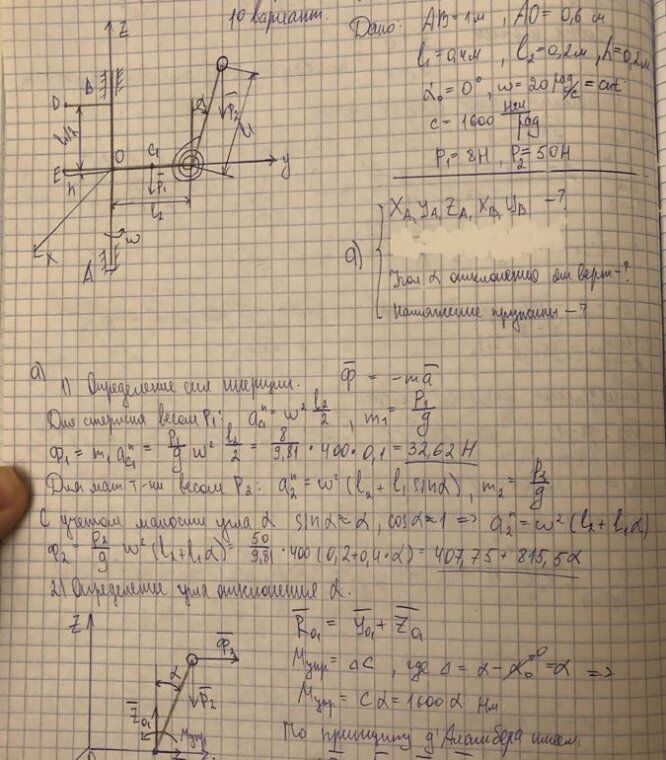 10 вариант.
Дано: AB=1м, AO=0,6 м
l₁=0,4м, l₂=0,2м, h=0,2м
α₀=0°, ω=20 рад/с = const
c=1600 Нм/рад
P₁=8Н, P₂=50Н
X_A, Y_A, Z_A, X_B, Y_B -?
а)
Угол α отклонения от верт-?
Натяжение пружины-?
Z
B
D
h/2
E
O
C₁
h
P̅₁
l₂
α
P̅₂
l₁
y
X
ω
A
а)
1) Определение сил инерции. Φ̅ = -ma̅
Для стержня весом P₁: aⁿ_C₁ = ω² l₂/2, m₁ = P₁/g
Φ₁ = m₁ aⁿ_C₁ = P₁/g ω² l₂/2 = 8/9,81 · 400 · 0,1 = 32,62 Н
Для мат т-ки весом P₂: a₂ⁿ = ω² (l₂ + l₁ sinα), m₂ = P₂/g
С учетом малости угла α sinα≈α, cosα≈1 => a₂ⁿ = ω² (l₂+l₁α)
Φ₂ = P₂/g ω² (l₂+l₁α) = 50/9,81 · 400 (0,2+0,4·α) = 407,75 + 815,5α
2) Определение угла отклонения α.
R̅₀₁ = Y̅₀₁ + Z̅₀₁
M_упр = Δc, где Δ = α - α₀⁰ = α =>
M_упр = cα = 1600α Нм
По принципу д'Аламбера имеем
Z
Φ̅₂
α
P̅₂
Z̅₀₁
M_упр